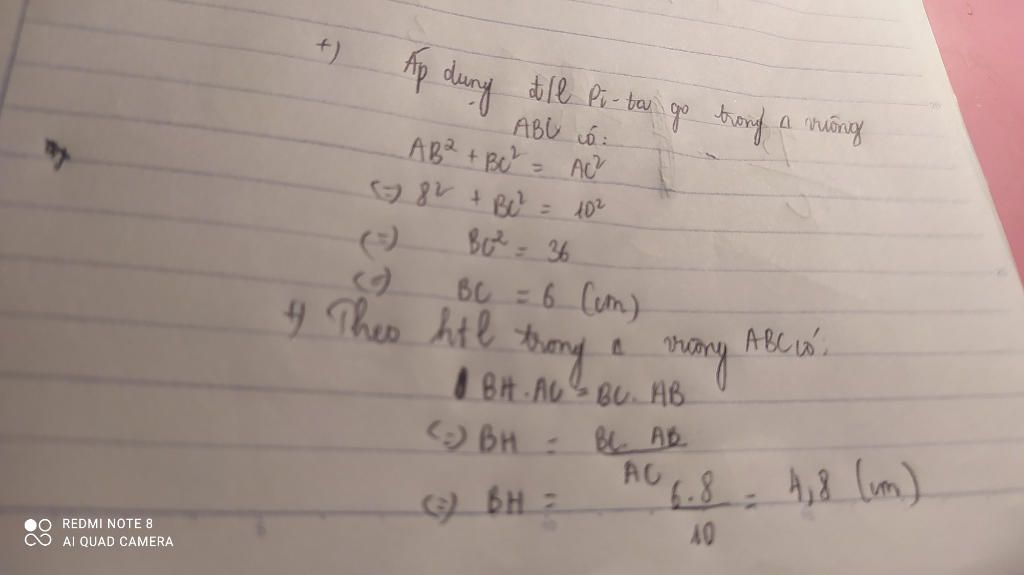 +) Áp dụng đ/l Pi-ta go trong Δ vuông
ABC có:
AB² + BC² = AC²
(=) 8² + BC² = 10²
(=) BC² = 36
(=) BC = 6 (cm)
+) Theo htl trong Δ vuông ABC có:
BH . AC = BC . AB
(=) BH = BC . AB / AC
(=) BH = 6.8 / 10 = 4,8 (cm)
REDMI NOTE 8
AI QUAD CAMERA